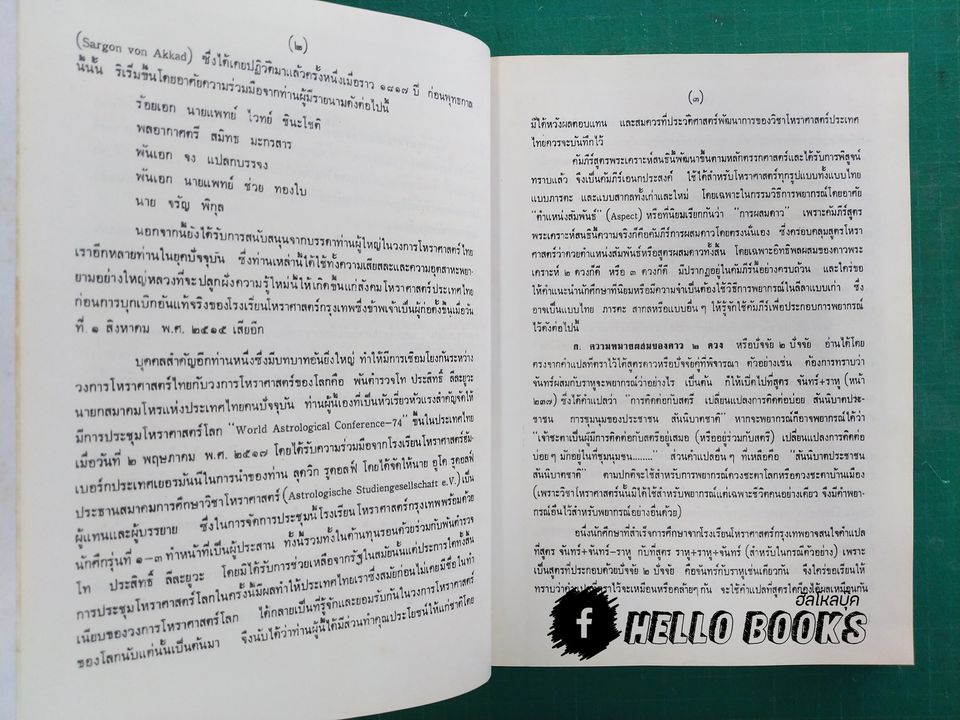 (๒)
(Sargon von Akkad) ซึ่งได้เคยปฏิวัติมาแล้วครั้งหนึ่งเมื่อราว ๑๘๑๗ ปี ก่อนพุทธกาล
นี้นั้น ริเริ่มขึ้นโดยอาศัยความร่วมมือจากท่านผู้มีรายนามดังต่อไปนี้
ร้อยเอก นายแพทย์ ไวทย์ ชินะโชติ
พลอากาศตรี สมิทธ มะกรสาร
พันเอก จง แปลกบรรจง
พันเอก นายแพทย์ ช่วย ทองใบ
นาย จรัญ พิกุล
นอกจากนี้ยังได้รับการสนับสนุนจากบรรดาท่านผู้ใหญ่ในวงการโหราศาสตร์ไทย
เราอีกหลายท่านในยุคปัจจุบัน ซึ่งท่านเหล่านี้ได้ใช้ทั้งความเสียสละและความอุตสาหะพยา-
ยามอย่างใหญ่หลวงที่จะปลูกฝังความรู้ใหม่นี้ให้เกิดขึ้นแก่สังคมโหราศาสตร์ประเทศไทย
ก่อนการบุกเบิกอันแท้จริงของโรงเรียนโหราศาสตร์กรุงเทพซึ่งข้าพเจ้าเป็นผู้ก่อตั้งขึ้นเมื่อวัน
ที่ ๑ สิงหาคม พ.ศ. ๒๕๑๕ เสียอีก
บุคคลสำคัญอีกท่านหนึ่งซึ่งมีบทบาทอันยิ่งใหญ่ ทำให้มีการเชื่อมโยงกันระหว่าง
วงการโหราศาสตร์ไทยกับวงการโหราศาสตร์ของโลกคือ พันตำรวจโท ประสิทธิ์ ลีละยูวะ
นายกสมาคมโหรแห่งประเทศไทยคนปัจจุบัน ท่านผู้นี้เองที่เป็นหัวเรี่ยวหัวแรงสำคัญจัดให้
มีการประชุมโหราศาสตร์โลก "World Astrological Conference–74" ขึ้นในประเทศไทย
เมื่อวันที่ ๒ พฤษภาคม พ.ศ. ๒๕๑๗ โดยได้รับความร่วมมือจากโรงเรียนโหราศาสตร์ฮัม-
เบอร์กประเทศเยอรมันนีในการนำของท่าน ลุดวิก รุดอลฟ์ โดยได้จัดให้นาย อูโด รุดอลฟ์
ประธานสมาคมการศึกษาวิชาโหราศาสตร์ (Astrologische Studiengesellschaft e.V.) เป็น
ผู้แทนและผู้บรรยาย ซึ่งในการจัดการประชุมนี้โรงเรียนโหราศาสตร์กรุงเทพพร้อมด้วย
นักศึกรุ่นที่ ๑–๓ ทำหน้าที่เป็นผู้ประสาน ทั้งนี้รวมทั้งในด้านทุนรอนด้วยร่วมกับพันตำรวจ
โท ประสิทธิ์ ลีละยูวะ โดยมิได้รับการช่วยเหลือจากรัฐในสมัยนั้นแต่ประการใดทั้งสิ้น
การประชุมโหราศาสตร์โลกในครั้งนี้มีผลทำให้ประเทศไทยเราซึ่งสมัยก่อนไม่เคยมีชื่อในทำ
เนียบของวงการโหราศาสตร์โลก ได้กลายเป็นที่รู้จักและยอมรับกันในวงการโหราศาสตร์
ของโลกนับแต่นั้นเป็นต้นมา จึงนับได้ว่าท่านผู้นี้ได้มีส่วนทำคุณประโยชน์ให้แก่ชาติโดย
(๓)
มิได้หวังผลตอบแทน และสมควรที่ประวัติศาสตร์พัฒนาการของวิชาโหราศาสตร์ประเทศ
ไทยควรจะบันทึกไว้
คัมภีร์สูตรพระเคราะห์สนธินี้พัฒนาขึ้นตามหลักตรรกศาสตร์และได้รับการพิสูจน์
ทราบแล้ว จึงเป็นคัมภีร์เอนกประสงค์ ใช้ได้สำหรับโหราศาสตร์ทุกรูปแบบทั้งแบบไทย
แบบภารตะ และแบบสากลทั้งเก่าและใหม่ โดยเฉพาะในกรรมวิธีการพยากรณ์โดยอาศัย
"ตำแหน่งสัมพันธ์" (Aspect) หรือที่นิยมเรียกกันว่า "การผสมดาว" เพราะคัมภีร์สูตร
พระเคราะห์สนธินี้ความจริงก็คือคัมภีร์การผสมดาวโดยตรงนั่นเอง ซึ่งครอบคลุมสูตรโหรา
ศาสตร์ว่าด้วยตำแหน่งสัมพันธ์หรือสูตรผสมดาวทั้งสิ้น โดยเฉพาะอิทธิพลผสมของดาวพระ
เคราะห์ ๒ ดวงก็ดี หรือ ๓ ดวงก็ดี มีปรากฏอยู่ในคัมภีร์นี้อย่างครบถ้วน และใคร่ขอ
ให้คำแนะนำนักศึกษาที่นิยมหรือมีความจำเป็นต้องใช้วิธีการพยากรณ์ในลีลาแบบเก่า ซึ่ง
อาจเป็นแบบไทย ภารตะ สากลหรือแบบอื่นๆ ให้รู้จักใช้คัมภีร์เพื่อประกอบการพยากรณ์
ไว้ดังต่อไปนี้
ก. ความหมายผสมของดาว ๒ ดวง หรือปัจจัย ๒ ปัจจัย อ่านได้โดย
ตรงจากคำแปลที่ตราไว้ใต้สูตรดาวหรือปัจจัยคู่ที่พิจารณา ตัวอย่างเช่น ต้องการทราบว่า
จันทร์ผสมกับราหูจะพยากรณ์ว่าอย่างไร เป็นต้น ก็ให้เปิดไปที่สูตร จันทร์+ราหู (หน้า
๒๓๗) ซึ่งได้คำแปลว่า "การติดต่อกับสตรี เปลี่ยนแปลงการติดต่อบ่อย สันนิบาตประ-
ชาชน การชุมนุมของประชาชน สันนิบาตชาติ" หากจะพยากรณ์ก็อาจพยากรณ์ได้ว่า
"เจ้าชะตาเป็นผู้มีการติดต่อกับสตรีอยู่เสมอ (หรืออยู่ร่วมกับสตรี) เปลี่ยนแปลงการติดต่อ
บ่อยๆ มักอยู่ในที่ชุมนุมชน........" ส่วนคำแปลอื่นๆ ที่เหลือคือ "สันนิบาตประชาชน
สันนิบาตชาติ" ตามปกติจะใช้สำหรับการพยากรณ์ดวงชะตาโลกหรือดวงชะตาบ้านเมือง
(เพราะวิชาโหราศาสตร์นั้นมิได้ใช้สำหรับพยากรณ์แต่เฉพาะชีวิตคนอย่างเดียว จึงมีคำพยา-
กรณ์อื่นไว้สำหรับพยากรณ์อย่างอื่นด้วย)
อนึ่งนักศึกษาที่สำเร็จการศึกษาจากโรงเรียนโหราศาสตร์กรุงเทพอาจสนใจคำแปล
ที่สูตร จันทร์+จันทร์–ราหู กับที่สูตร ราหู+ราหู+จันทร์ (สำหรับในกรณีตัวอย่าง) เพราะ
เป็นสูตรที่ประกอบด้วยปัจจัย ๒ ปัจจัย คือจันทร์กับราหูเช่นเดียวกัน จึงใคร่ขอเรียนให้
ทราบว่าคำแปลที่ตราไว้จะเหมือนหรือคล้ายๆ กัน จะใช้คำแปลที่สูตรใดก็คงได้ผลเหมือนกัน
ฮัลโหลบุ๊ค
f HELLO BOOKS